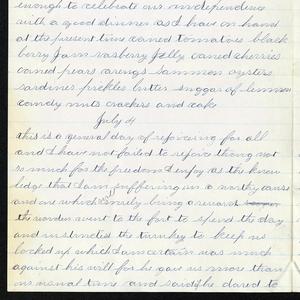 enough to celebrate our independence
with a good dinner as I have on hand
at the present time caned tomatoes black
berry Jam rasberry Jelly caned cherries
caned pears orengs sammon oysters
sardines pickles butter suggar of lemmon
candy nuts crackers and cake
July 4
this is a general day of rejoicing for all
and I have not failed to rejoice though not
so much for the freedom I enjoy as the know
ledge that I am suffering in a worthy cause
and one which I surely bring a reward
the warden went to the fort to spend the day
and instructed the turnkey to keep us
locked up which I am certain was much
against his will for he gave us more than
us usual time and said he dared to